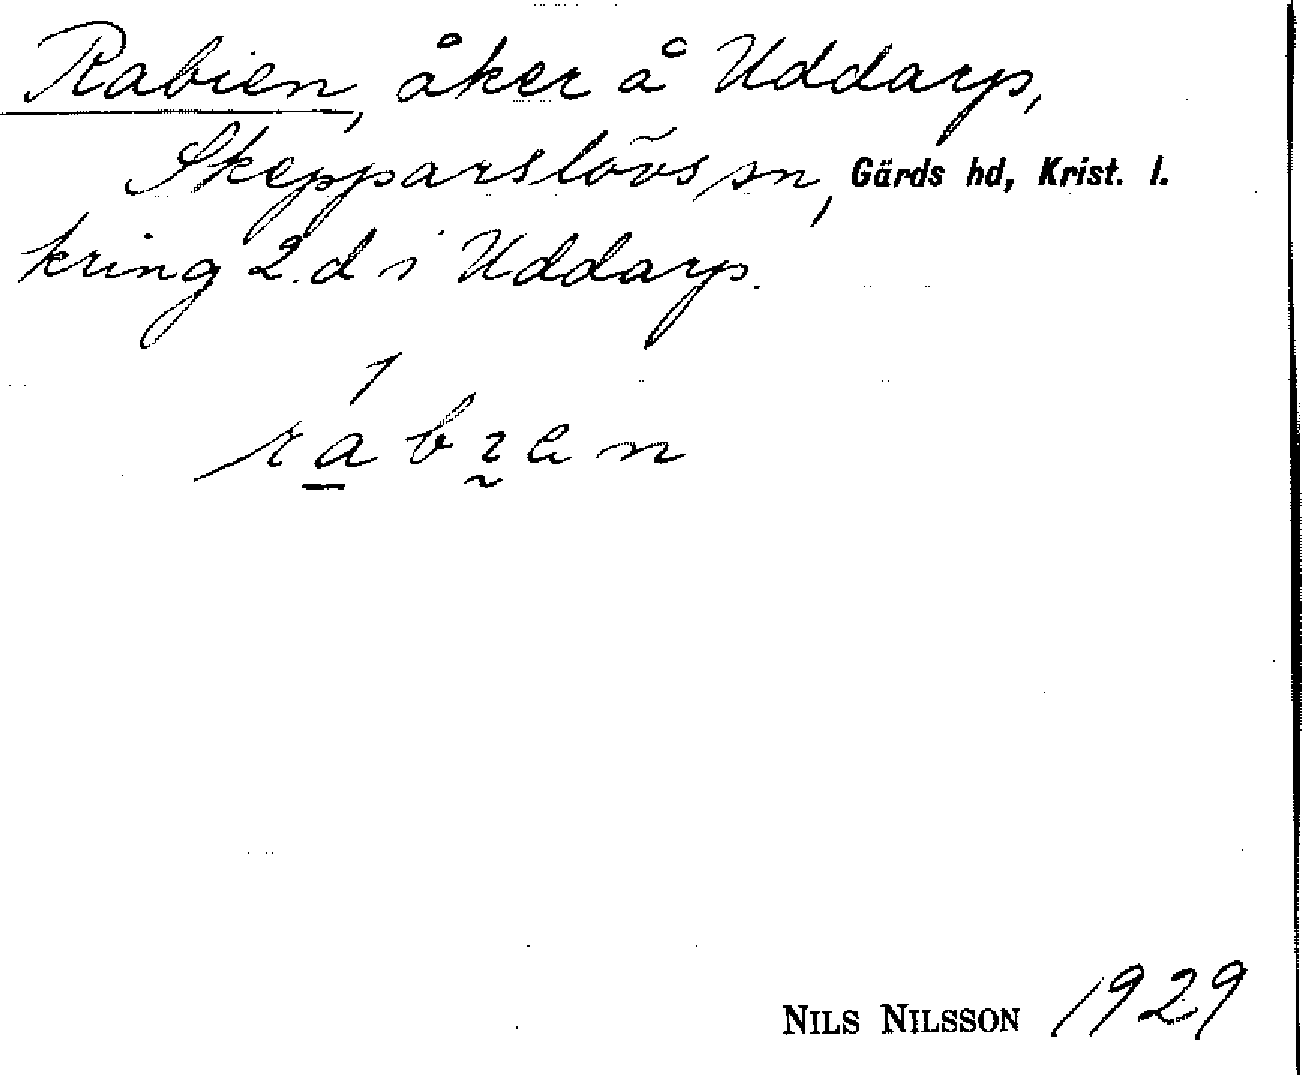 Rabien, åker å Uddarp,
Skepparslövs sn, Gärds hd, Krist. l.
kring 2.d i Uddarp.
NILS NILSSON 1929